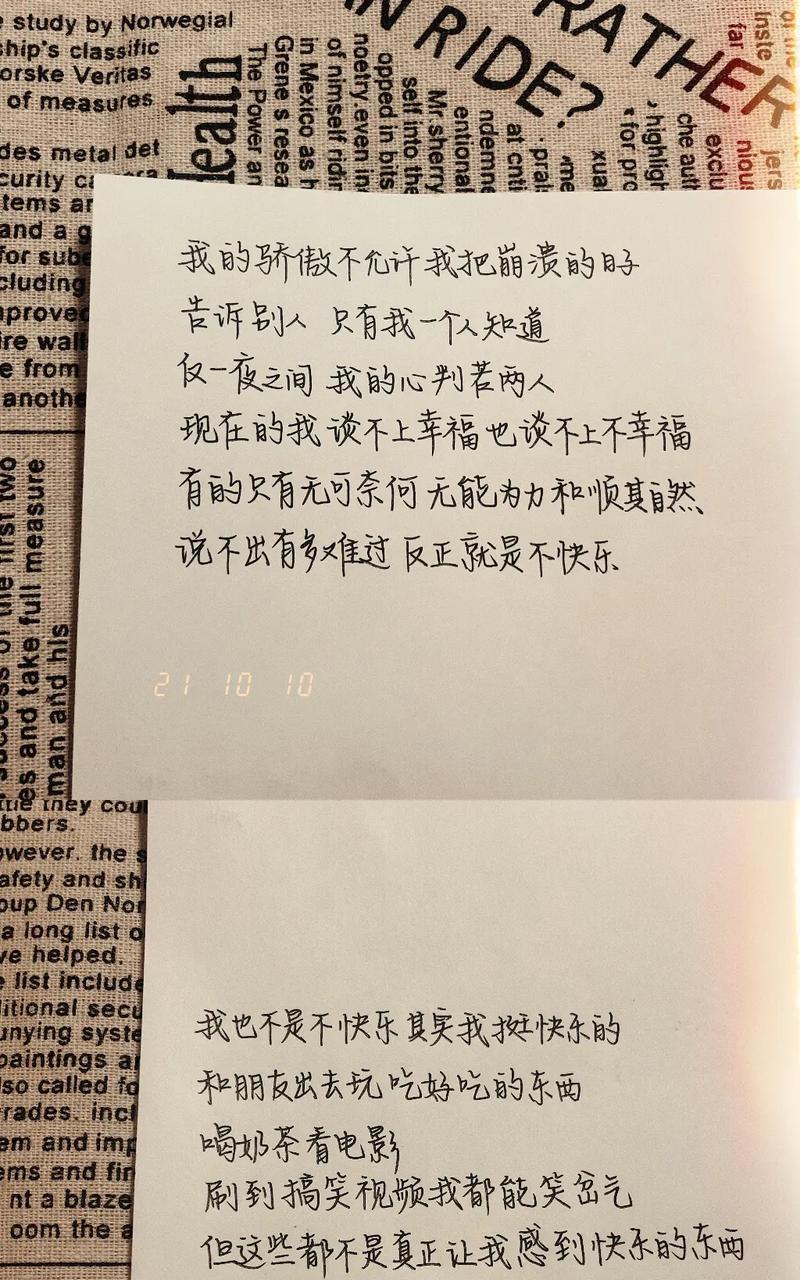 study by Norwegial
ship's classific
orske Veritas
of measures
des metal det
tems ar
and a g
for sub
cluding
mproved
ire wall
e from
anothe
ealth
The Power an
Grene s resea
in Mexico as h
of himself ridin
noetry.even inv
opped in bits
self into the
Mr.sherry
entional
ndemne
at cnti
prai
xual
for pro
highligh
che auth
exclu
far
inste
nious
jers
N RIDE?
RATHER
我的骄傲不允许我把崩溃的日子
告诉别人 只有我一个人知道
仅一夜之间 我的心判若两人
现在的我谈不上幸福也谈不上不幸福
有的只有无可奈何 无能为力和顺其自然、
说不出有多难过 反正就是不快乐
success of the first two
es and take full measure
man and his
21 10 10
they cou
bbers.
owever. the s
afety and sh
oup Den Nor
a long list o
ve helped.
list include
ditional secu
unying syste
paintings a
so called fo
rades. incl
em and imp
ems and fir
nt a blaze
oom the a
我也不是不快乐 其实我挺快乐的
和朋友出去玩 吃好吃的东西
喝奶茶看电影
刷到搞笑视频我都能笑岔气
但这些都不是真正让我感到快乐的东西